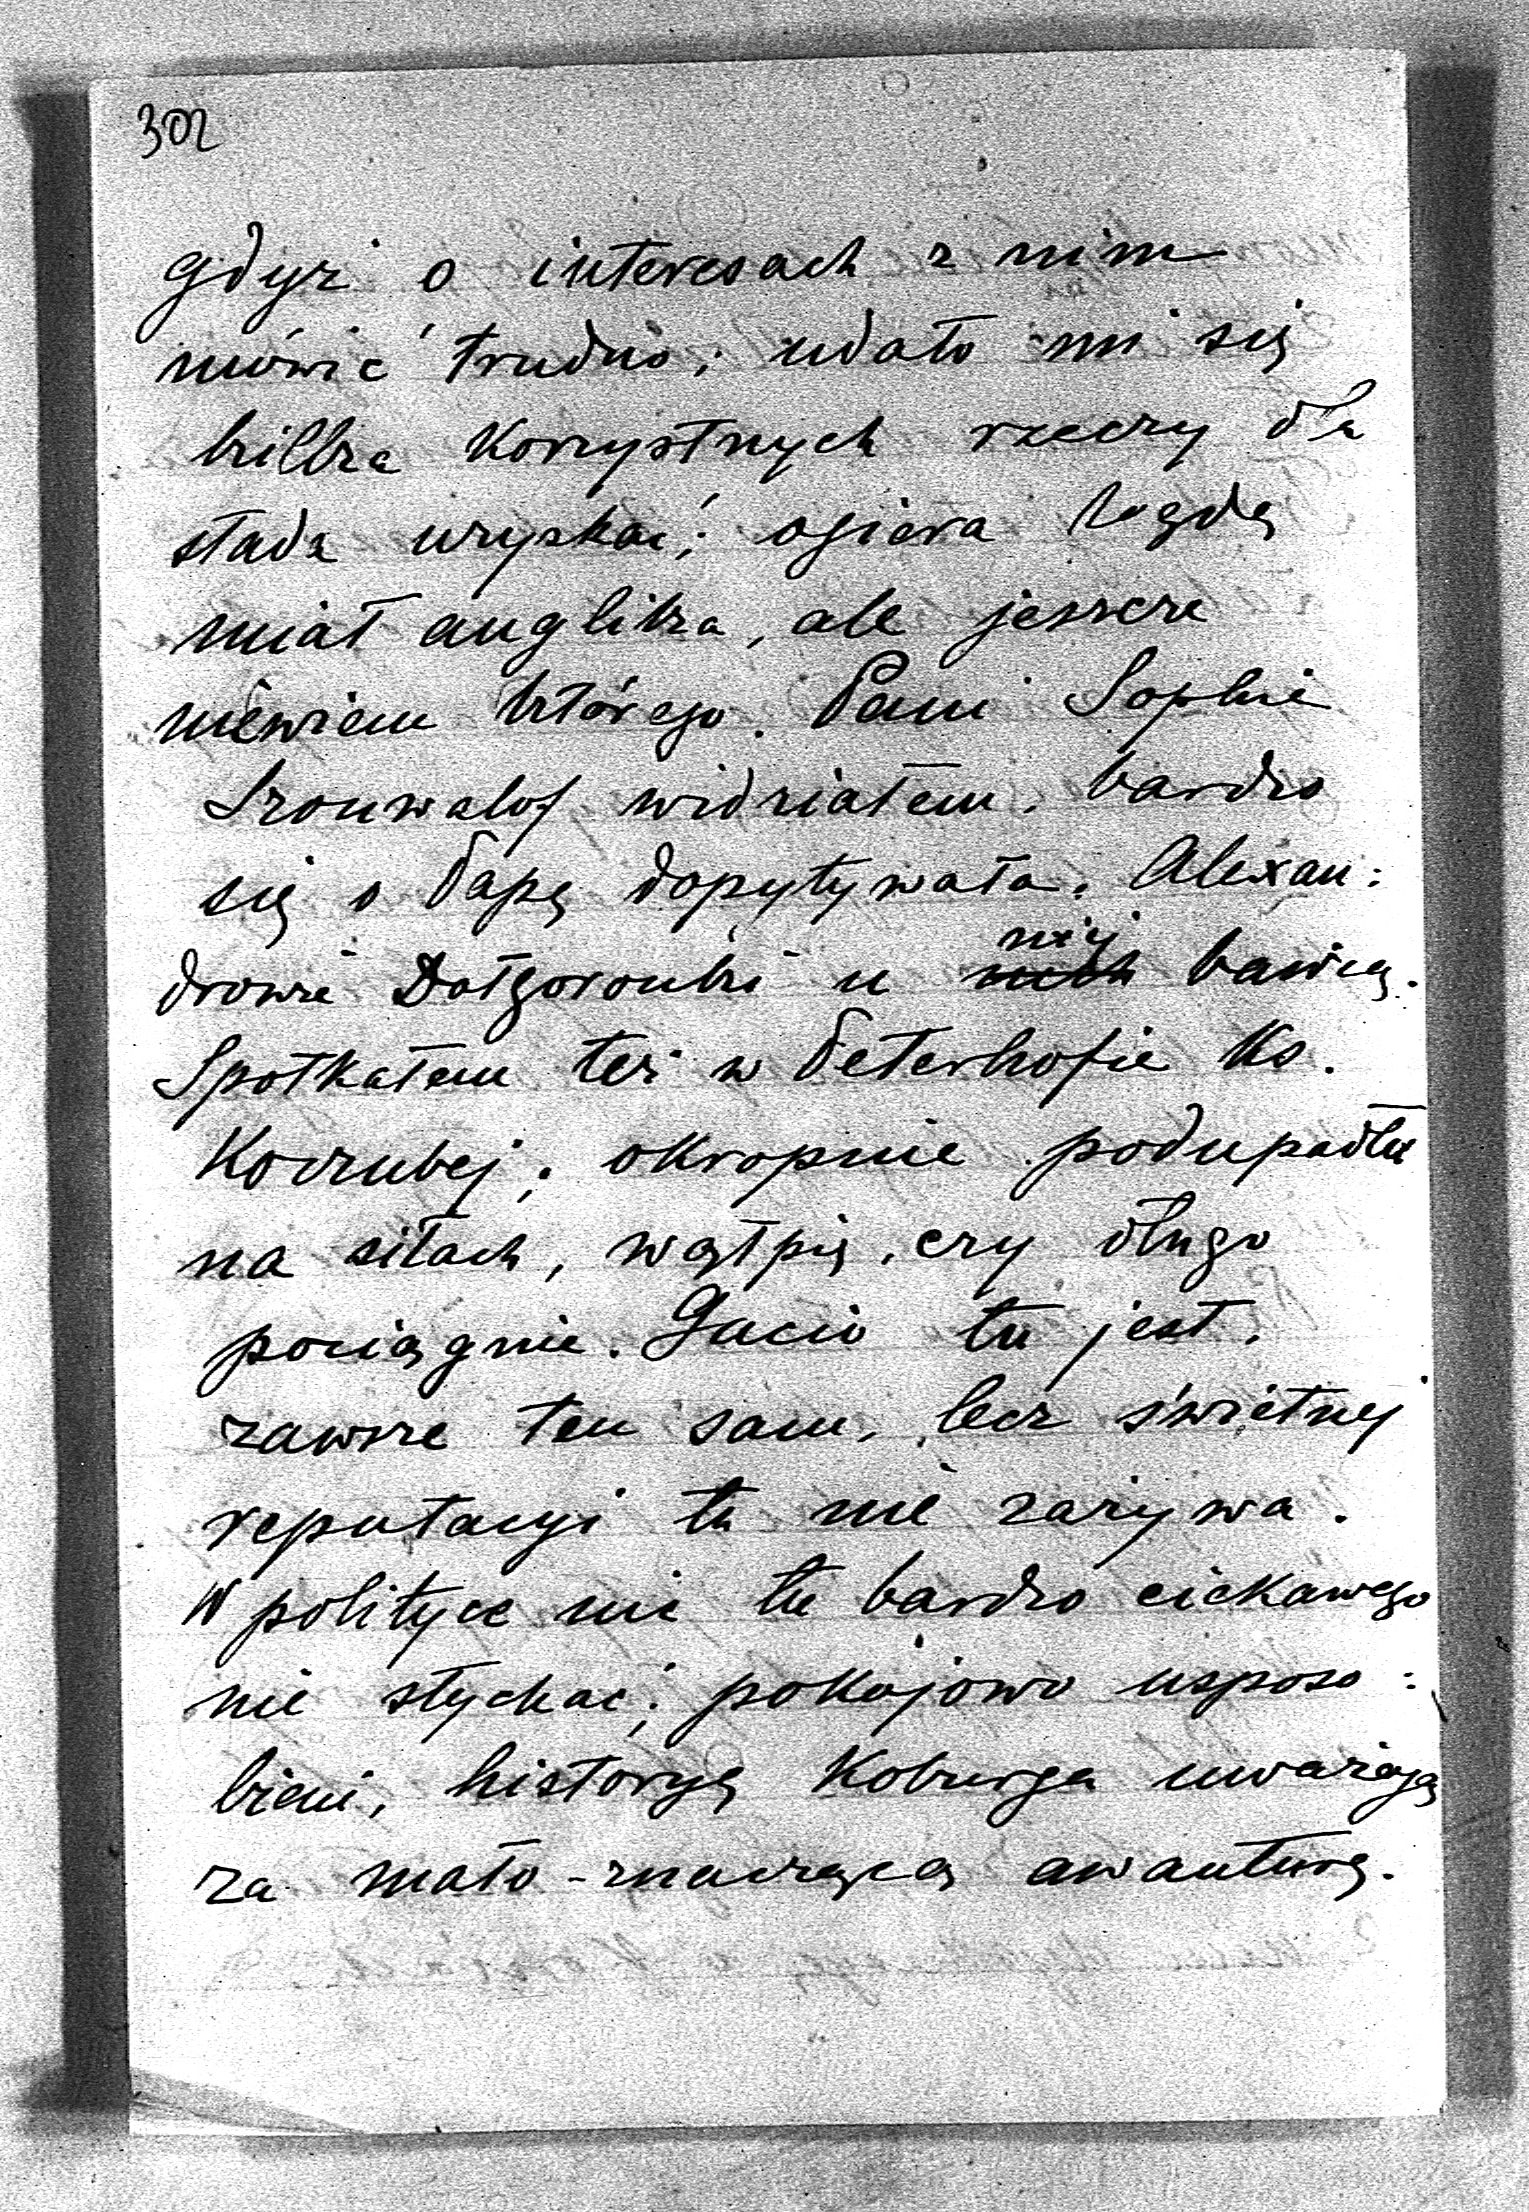 302
gdyż o interesach z nim
mówić trudno; udało mi się
kilka korzystnych rzeczy dla
stada uzyskać; ogiera będę
miał anglika, ale jeszcze
niewiem którego. Pani Sophie
Szouwalof widziałem, bardzo
się o Papę dopytywała. Alexan:
drowie Dołgorouki u niej bawią.
Spotkałem też w Peterhofie Ks.
Koczubej; okropnie podupadła
na siłach, wątpię, czy długo
pociągnie. Gucio tu jest,
zawsze ten sam, lecz świetnej
reputacyi tu nie zażywa.
W polityce nic tu bardzo ciekawego
nie słychać; pokojowo usposo:
bieni, historyę Koburga uważają
za mało-znaczącą awanturę.